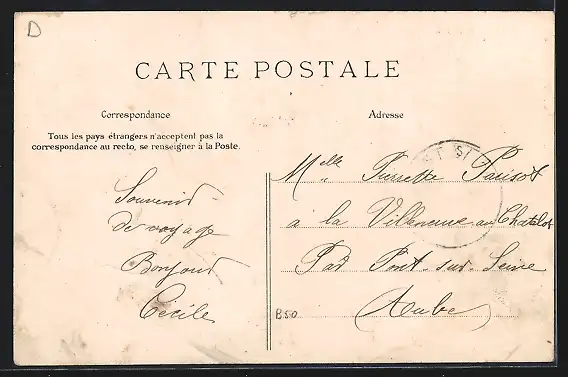 D
CARTE POSTALE
Correspondance
Adresse
Tous les pays étrangers n'acceptent pas la
correspondance au recto, se renseigner à la Poste.
Souvenir
de voyage
Bonjour
Cécile
Melle Pierrette Parisot
à la Villeneuve au Chatelot
Par Pont-sur-Seine
(Aube)
B50